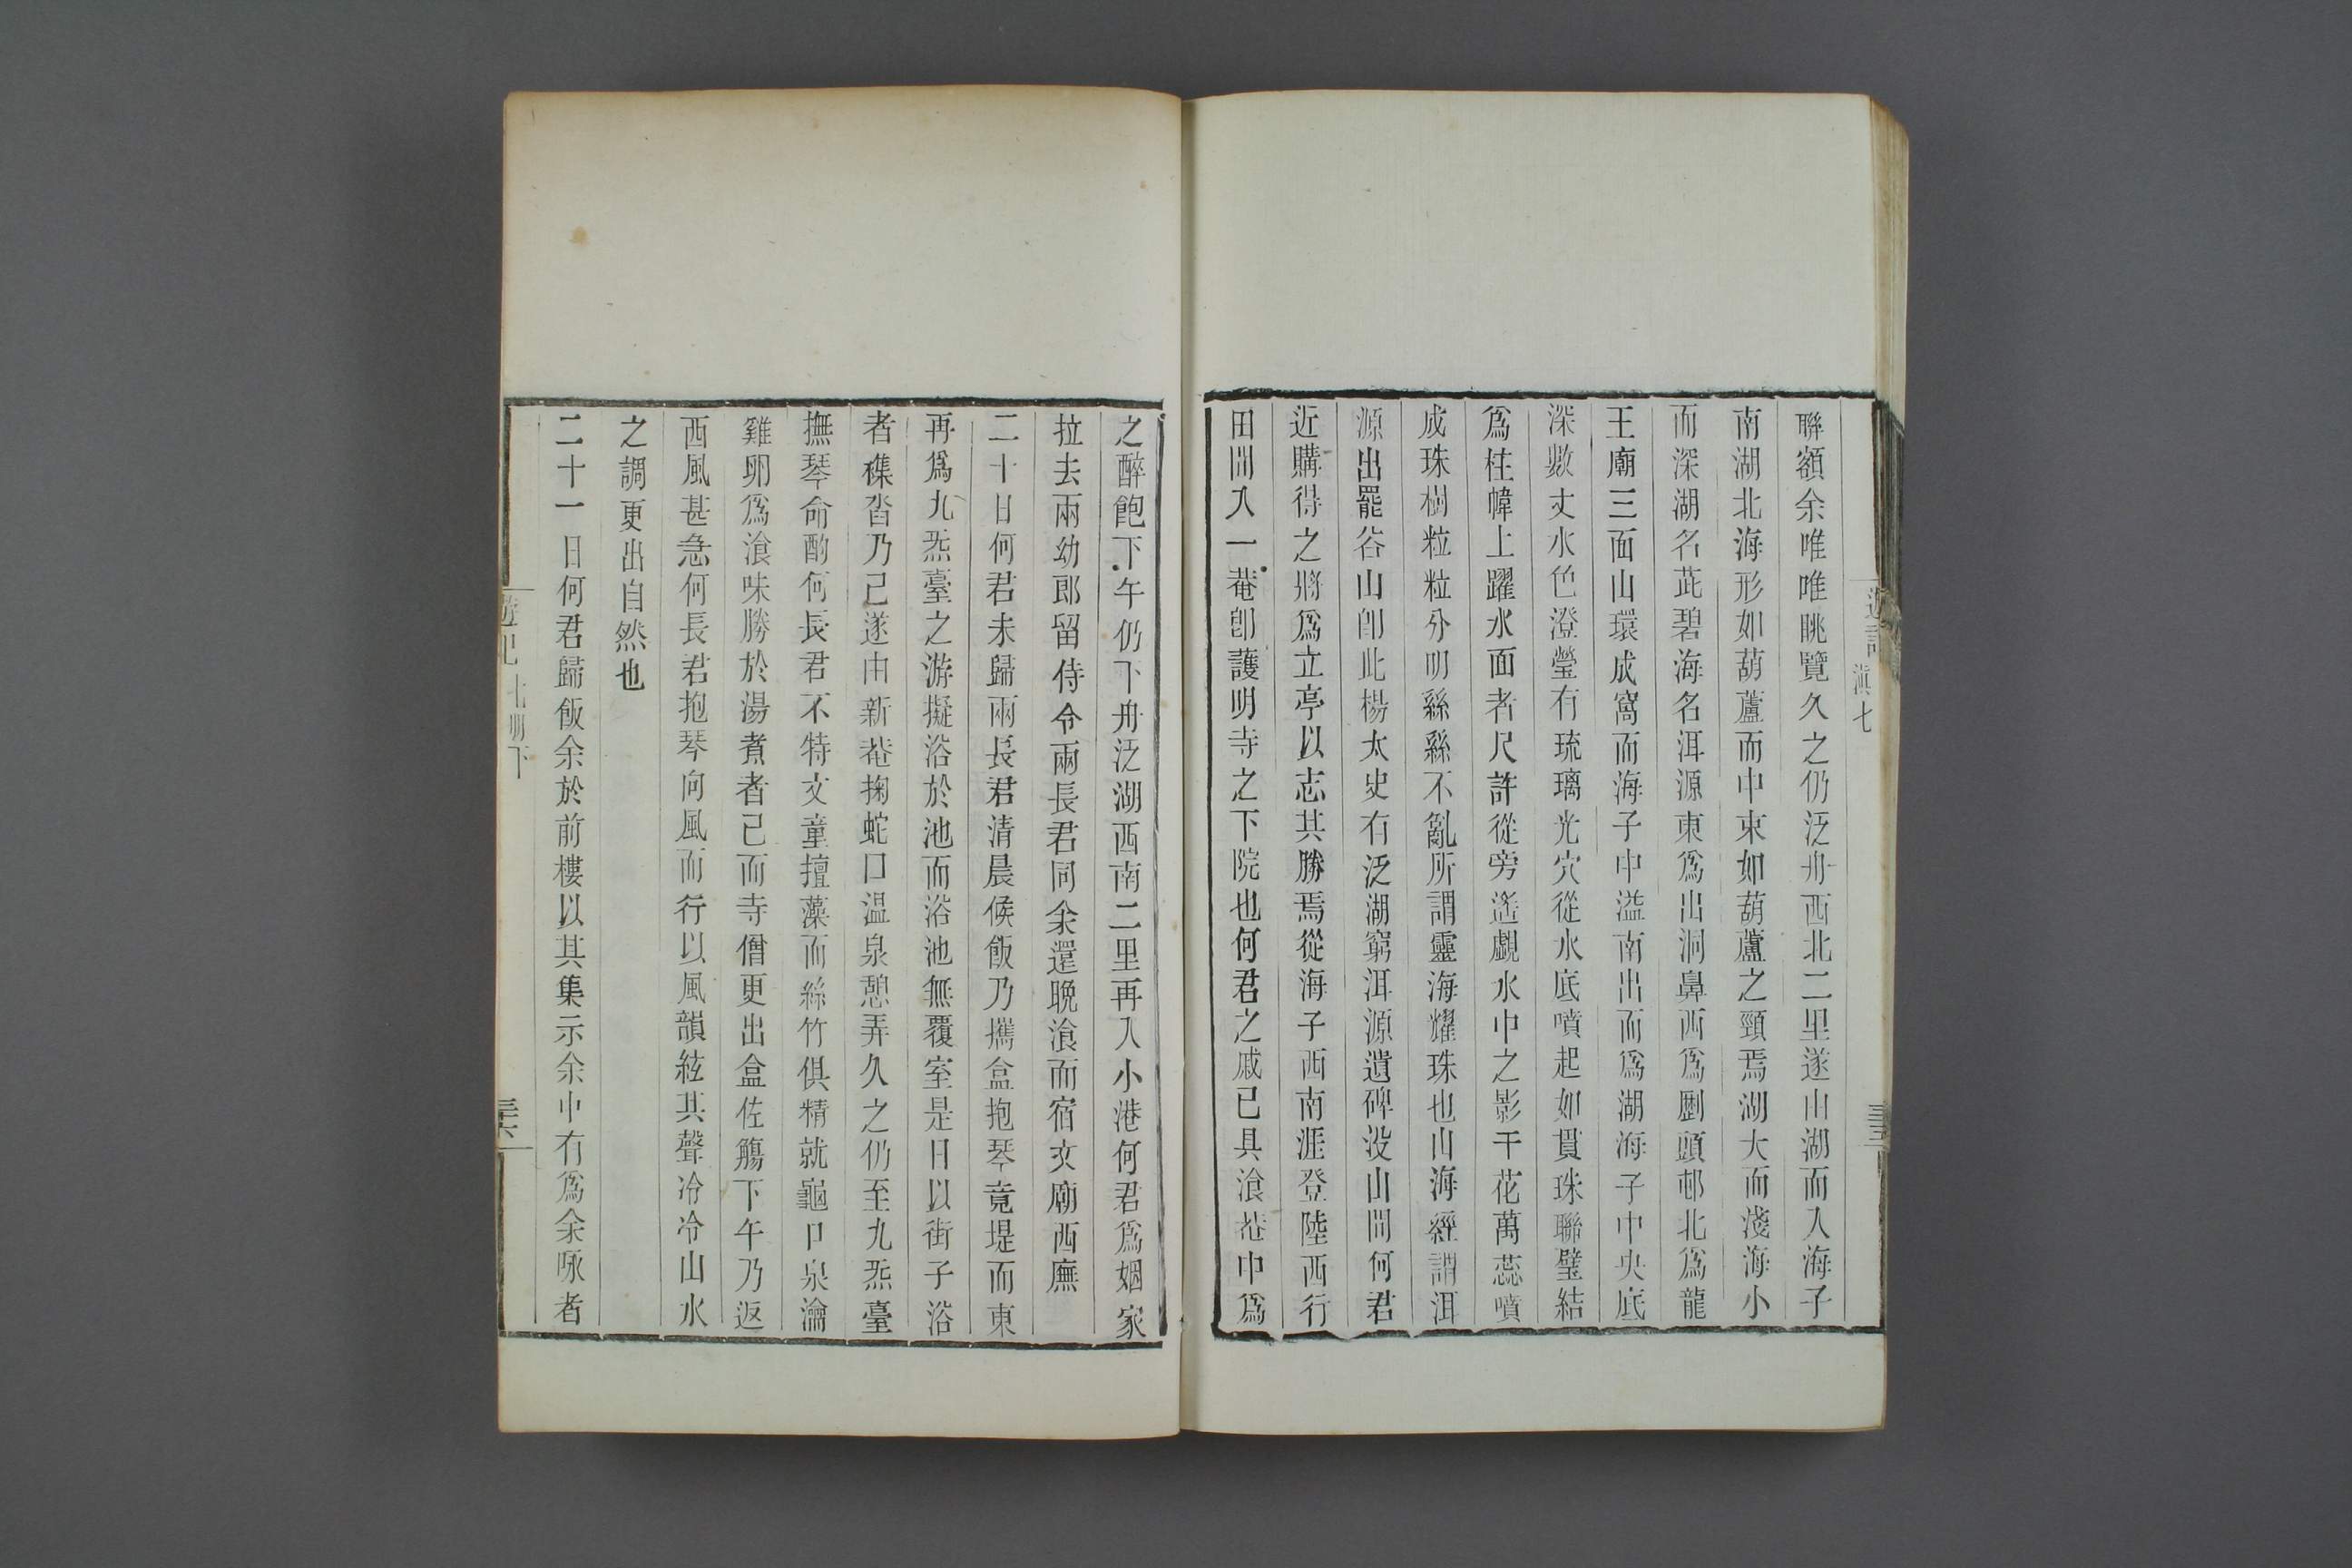 聯額余唯唯眺覽久之仍泛舟西北二里遂由湖而入海子
南湖北海形如葫蘆而中束如葫蘆之頸焉湖大而淺海小
而深湖名茈碧海名洱源東爲出洞鼻西爲剧頭邨北爲龍
王廟三面山環成窩而海子中溢南出而爲湖海子中央底
深數丈水色澄瑩有琉璃光穴從水底噴起如貫珠聯璧結
爲柱幃上躍水面者尺許從旁遙覷水中之影千花萬蕊噴
成珠樹粒粒分明絲絲不亂所謂靈海耀珠也山海經謂洱
源出罷谷山卽此楊太史有泛湖窮洱源遺碑没山間何君
近購得之將爲立亭以志其勝焉從海子西南涯登陸西行
田間入一菴卽護明寺之下院也何君之戚已具飡菴中爲
之醉飽下午仍下舟泛湖西南二里再入小港何君爲姻家
拉去兩幼郎留侍令兩長君同余還晚飡而宿文廟西廡
二十日何君未歸兩長君清晨候飯乃攜盒抱琴竟堤而東
再爲九炁臺之游擬浴於池而浴池無覆室是日以街子浴
者襍沓乃已遂由新菴掬蛇口温泉憩弄久之仍至九炁臺
撫琴命酌何長君不特文童擅藻而絲竹俱精就龜口泉瀹
雞卵爲飡味勝於湯煮者已而寺僧更出盒佐觴下午乃返
西風甚急何長君抱琴向風而行以風韻絃其聲冷冷山水
之調更出自然也
二十一日何君歸飯余於前樓以其集示余中有爲余咏者
遊記
滇七
遊記七
下